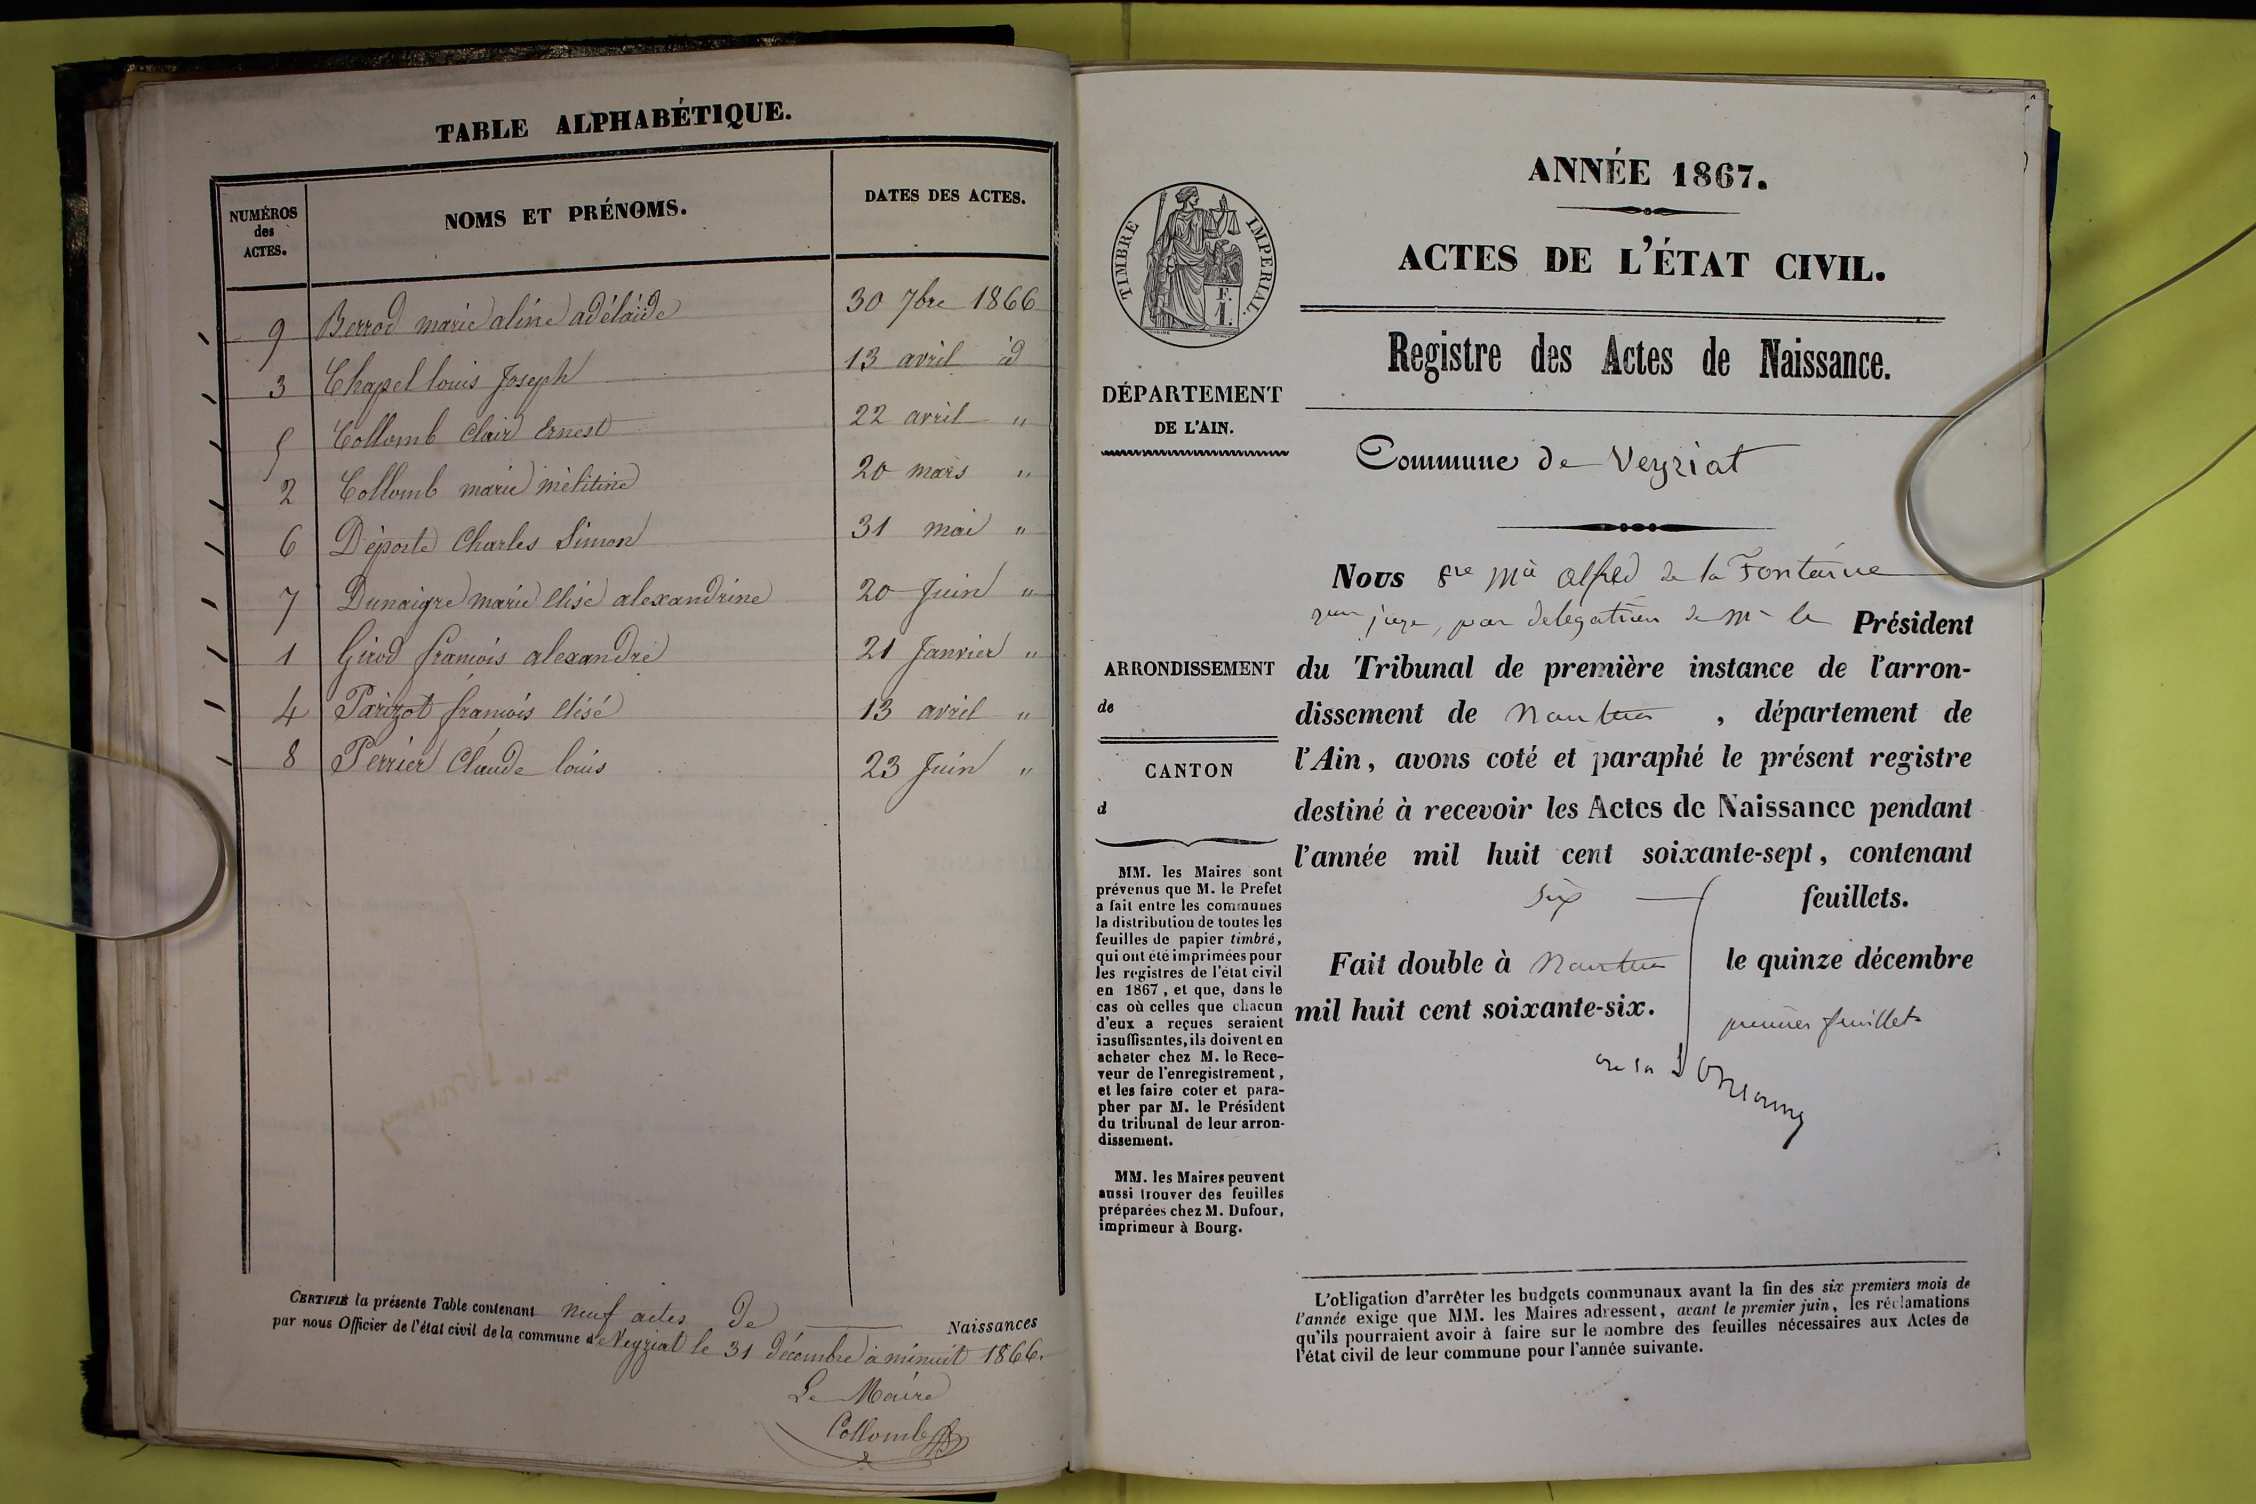 TABLE ALPHABÉTIQUE.
NUMÉROS des ACTES. NOMS ET PRÉNOMS. DATES DES ACTES.
9 Berrod marie aline adélaïde 30 7bre 1866
3 Chapel louis Joseph 13 avril id
5 Collomb Clair Ernest 22 avril "
2 Collomb marie mélitine 20 mars "
6 Déporte Charles Simon 31 mai "
7 Dunaigre marie Elise alexandrine 20 Juin "
1 Girod françois alexandre 21 Janvier "
4 Parizot françois Elisé 13 avril "
8 Perrier Claude louis 23 Juin "
CERTIFIÉ la présente Table contenant neuf actes de Naissances
par nous Officier de l'état civil de la commune de Veyziat le 31 décembre à minuit 1866.
Le Maire
Collomb
ANNÉE 1867.
ACTES DE L'ÉTAT CIVIL.
Registre des Actes de Naissance.
TIMBRE IMPERIAL.
F.
1.
DÉPARTEMENT
DE L'AIN.
Commune de Veyziat
Nous alfred de la Fontaine
juge, par delegation de Mr le Président
du Tribunal de première instance de l'arron-
dissement de Nantua, département de
l'Ain, avons coté et paraphé le présent registre
destiné à recevoir les Actes de Naissance pendant
l'année mil huit cent soixante-sept, contenant
six feuillets.
Fait double à Nantua le quinze décembre
mil huit cent soixante-six.
premier feuillet
ARRONDISSEMENT
de
CANTON
d
MM. les Maires sont
prévenus que M. le Préfet
a fait entre les communes
la distribution de toutes les
feuilles de papier timbré,
qui ont été imprimées pour
les registres de l'état civil
en 1867, et que, dans le
cas où celles que chacun
d'eux a reçues seraient
insuffisantes, ils doivent en
acheter chez M. le Rece-
veur de l'enregistrement,
et les faire coter et para-
pher par M. le Président
du tribunal de leur arron-
dissement.
MM. les Maires peuvent
aussi trouver des feuilles
préparées chez M. Dufour,
imprimeur à Bourg.
L'obligation d'arrêter les budgets communaux avant la fin des six premiers mois de
l'année exige que MM. les Maires adressent, avant le premier juin, les réclamations
qu'ils pourraient avoir à faire sur le nombre des feuilles nécessaires aux Actes de
l'état civil de leur commune pour l'année suivante.